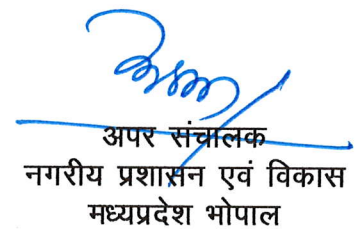 अपर संचालक
नगरीय प्रशासन एवं विकास
मध्यप्रदेश भोपाल